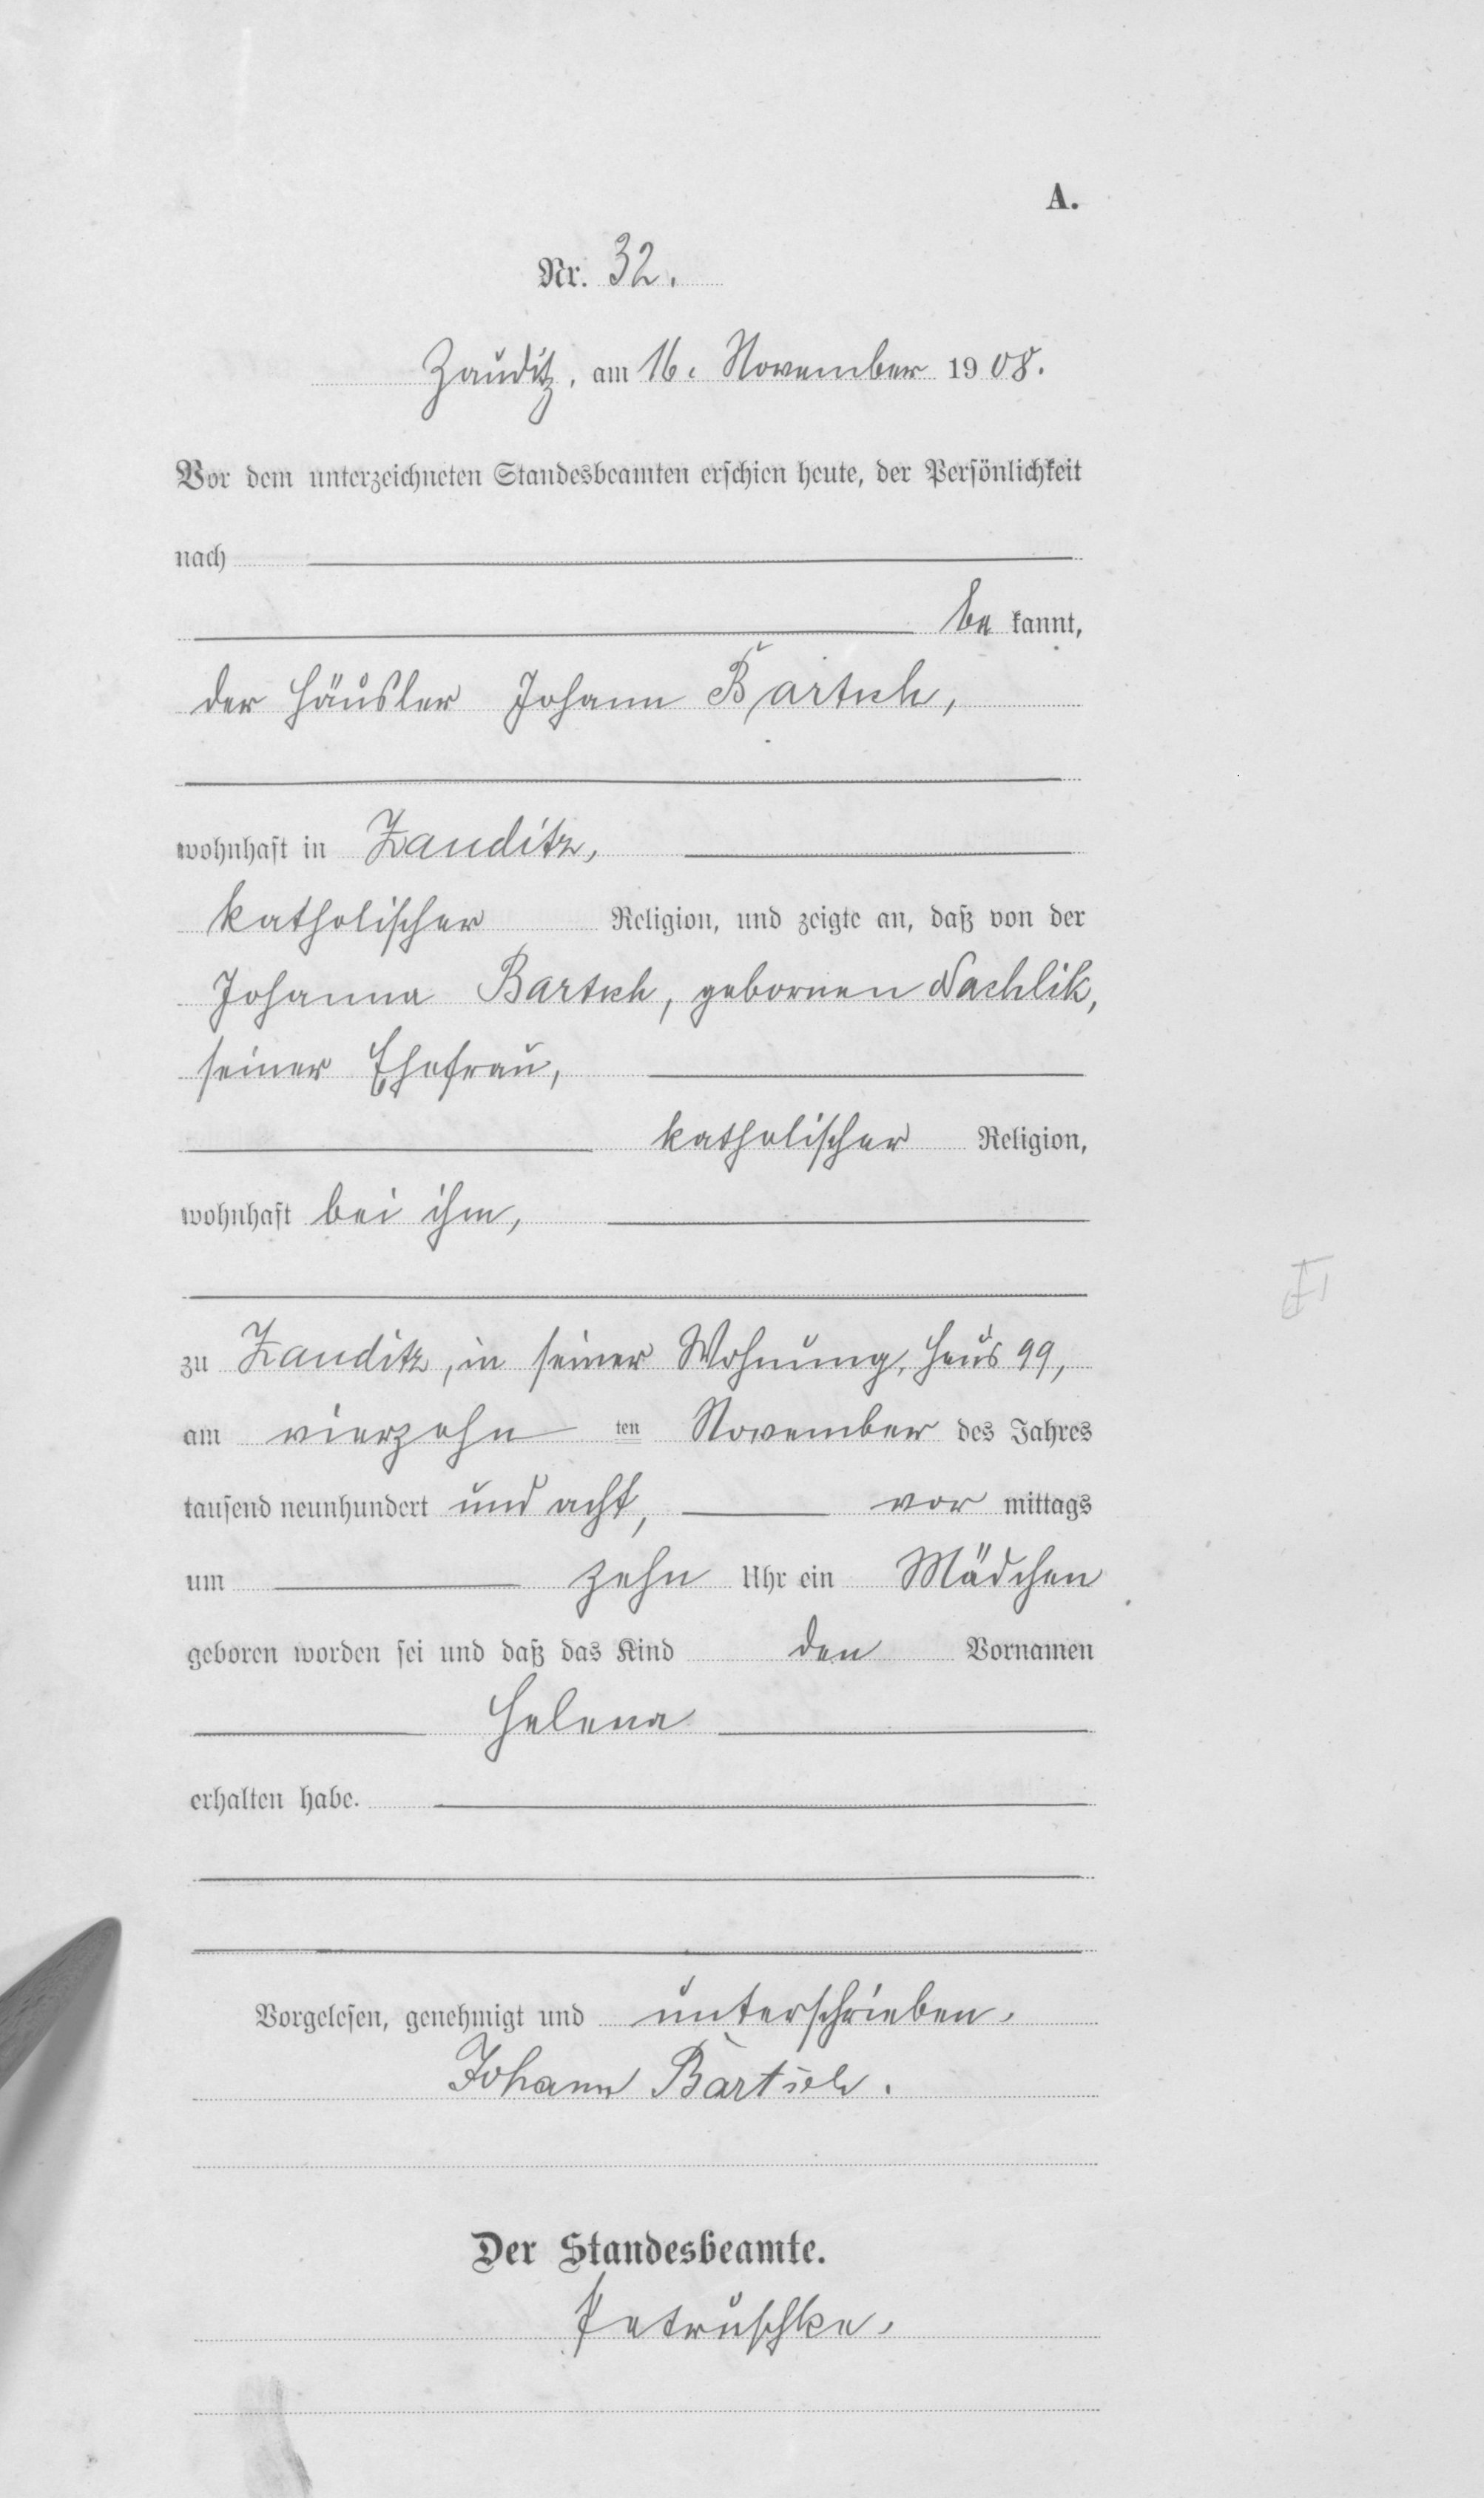 A.
Nr. 32.
Zauditz, am 16. November 1908.
Vor dem unterzeichneten Standesbeamten erschien heute, der Persönlichkeit
nach
be kannt,
der Häusler Johann Bartsch,
wohnhaft in Zauditz,
katholischer Religion, und zeigte an, daß von der
Johanna Bartsch, geborenen Nachlik,
seiner Ehefrau,
katholischer Religion,
wohnhaft bei ihm,
zu Zauditz, in seiner Wohnung, Haus 99,
am vierzehn ten November des Jahres
tausend neunhundert und acht, vor mittags
um zehn Uhr ein Mädchen
geboren worden sei und daß das Kind den Vornamen
Helena
erhalten habe.
Vorgelesen, genehmigt und unterschrieben.
Johann Bartsch.
Der Standesbeamte.
Petruschke.